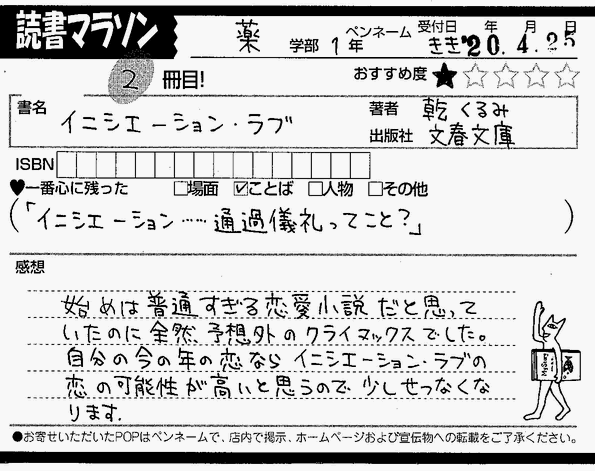 読書マラソン
薬 学部 1年 ペンネーム きき 受付日 '20.4.25 年 月 日
2 冊目! おすすめ度 ★☆☆☆☆
書名 イニシエーション・ラブ 著者 乾 くるみ
出版社 文春文庫
ISBN
♥一番心に残った □場面 ☑ことば □人物 □その他
(「イニシエーション……通過儀礼ってこと?」)
感想
始めは普通すぎる恋愛小説だと思って
いたのに全然予想外のクライマックスでした。
自分の今の年の恋ならイニシエーション・ラブの
恋の可能性が高いと思うので少しせつなくな
ります.
●お寄せいただいたPOPはペンネームで、店内で掲示、ホームページおよび宣伝物への転載をご了承ください。